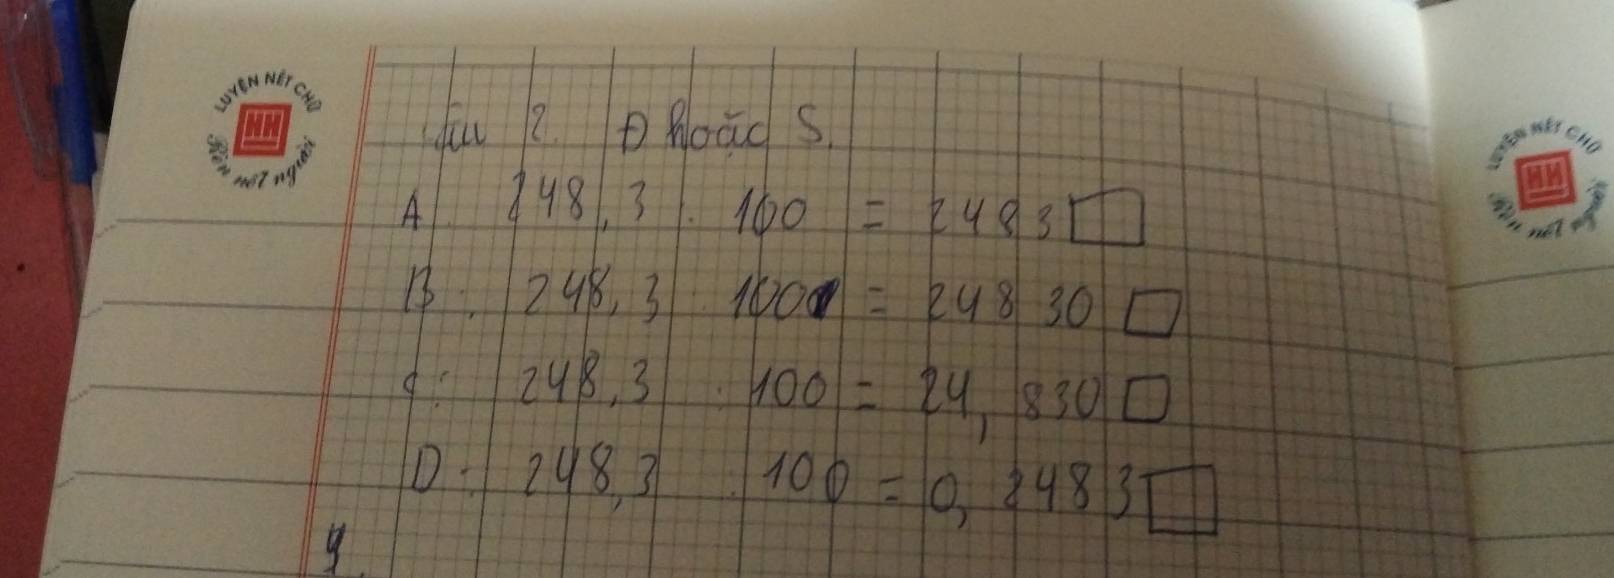 LUYỆN NÉT CHỮ
HH
Rèn nết người
Câu 2. Đ hoặc S.
A. 248,3 : 100 = 2483
B: 248,3 : 100 = 24830
C: 248,3 : 100 = 24,830
D: 248,3 : 100 = 0,2483
LUYỆN NÉT CHỮ
HH